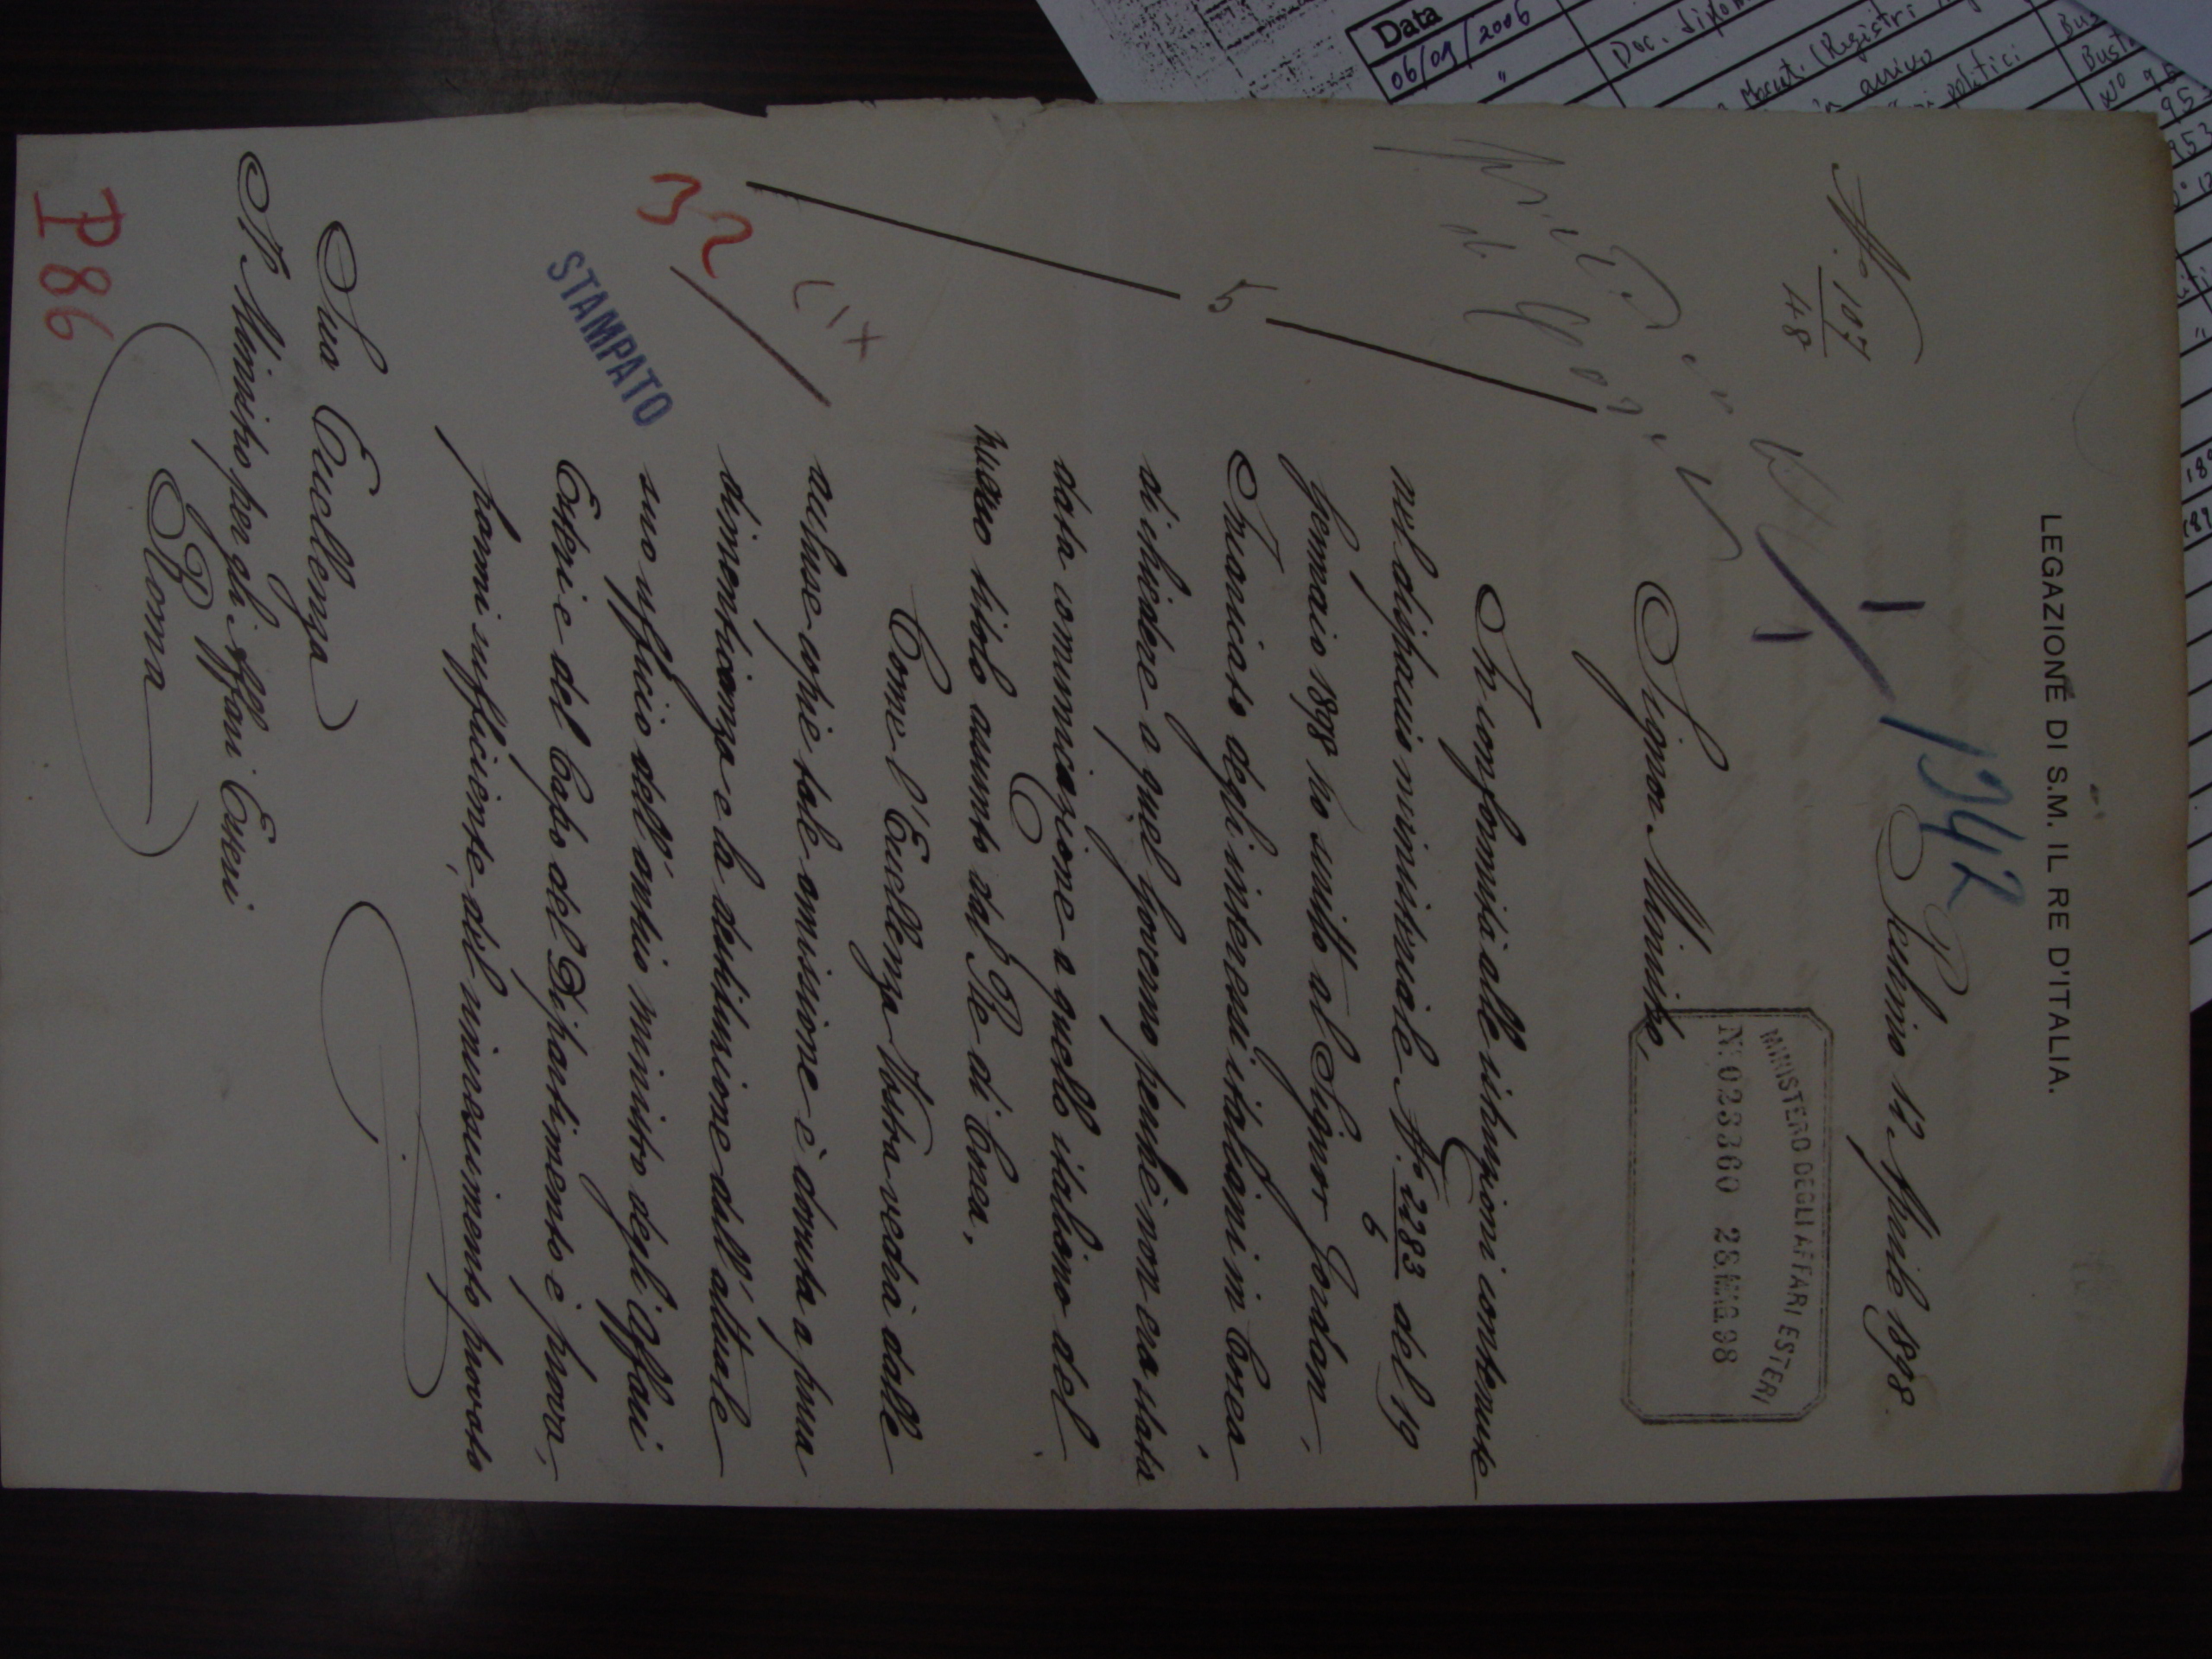 LEGAZIONE DI S.M. IL RE D'ITALIA.
N.o 107
48
1342
Pechino 12 Aprile 1898.
MINISTERO DEGLI AFFARI ESTERI
N. 023360 28.MAG.98
Signor Ministro,
In conformità alle istruzioni contenute
nel dispaccio ministeriale N.o 2283 del 19
6
Gennaio 1898 ho scritto al Signor Jordan,
Incaricato degli interessi italiani in Corea,
di chiedere a quel Governo perché non era stata
data comunicazione a quello italiano del
nuovo titolo assunto dal Re di Corea.
Come l'Eccellenza Vostra vedrà dalle
accluse copie tale omissione è dovuta a pura
dimenticanza e la destituzione dall'attuale
suo ufficio dell'antico ministro degli Affari
Esteri e del Capo del Dipartimento è prova,
parmi sufficiente, del rincrescimento provato
5
32
CIX
STAMPATO
Sua Eccellenza
Il Ministro per gli Affari Esteri
Roma
P86
Data
06/09/2006
"
politici